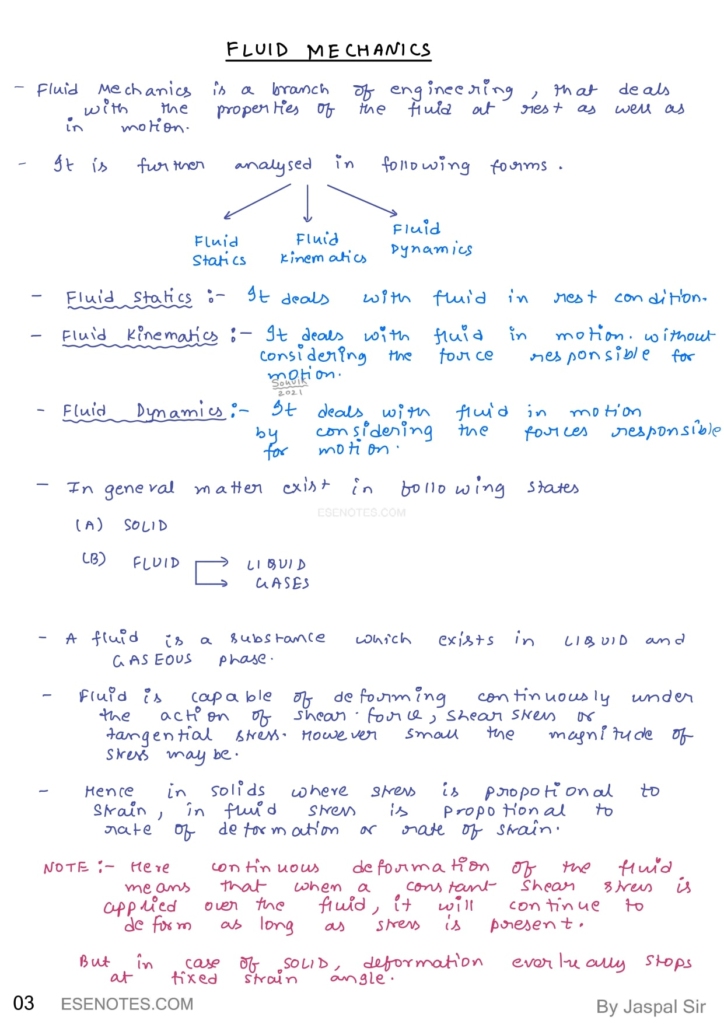 FLUID MECHANICS
- Fluid Mechanics is a branch of engineering, that deals
with the properties of the fluid at rest as well as
in motion.
- It is further analysed in following forms.
Fluid Statics
Fluid Kinematics
Fluid Dynamics
- Fluid Statics :- It deals with fluid in rest condition.
- Fluid Kinematics :- It deals with fluid in motion. without
considering the force responsible for
motion.
Souvik
2021
- Fluid Dynamics :- It deals with fluid in motion
by considering the forces responsible
for motion.
- In general matter exist in following states
ESENOTES.COM
(A) SOLID
(B) FLUID
LIQUID
GASES
- A fluid is a substance which exists in LIQUID and
GASEOUS phase.
- Fluid is capable of deforming continuously under
the action of shear force, shear stress or
tangential stress. However small the magnitude of
stress may be.
- Hence in solids where stress is propotional to
strain, in fluid stress is propotional to
rate of deformation or rate of strain.
NOTE :- Here continuous deformation of the fluid
means that when a constant shear stress is
applied over the fluid, it will continue to
deform as long as stress is present.
But in case of SOLID, deformation eventually stops
at fixed strain angle.
03 ESENOTES.COM
By Jaspal Sir